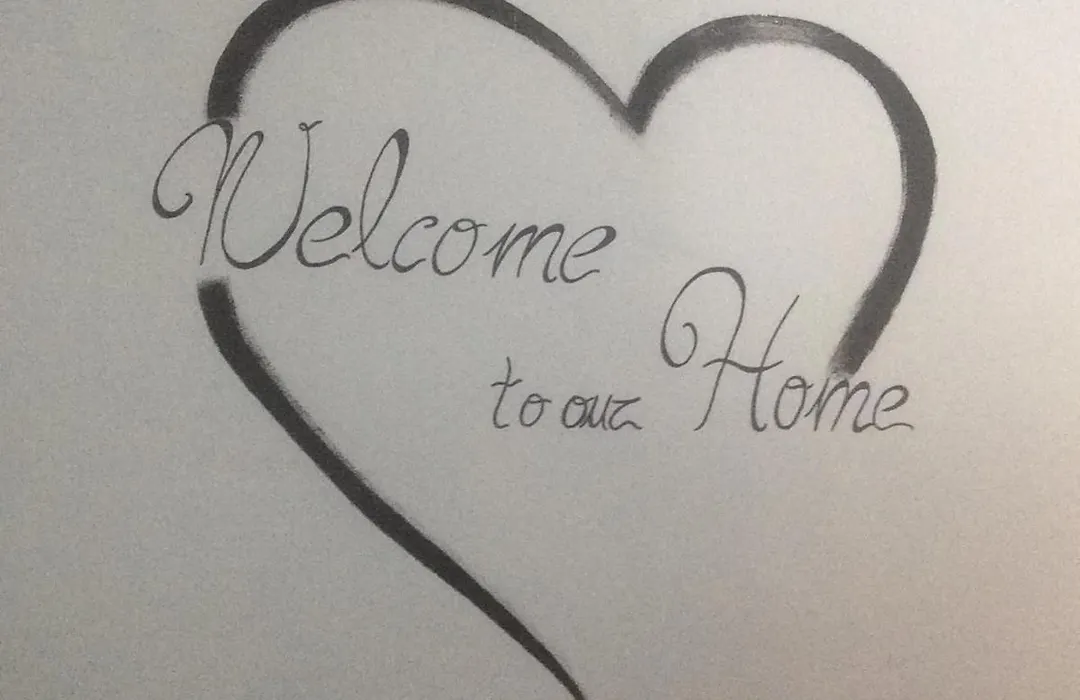 Welcome
to our Home